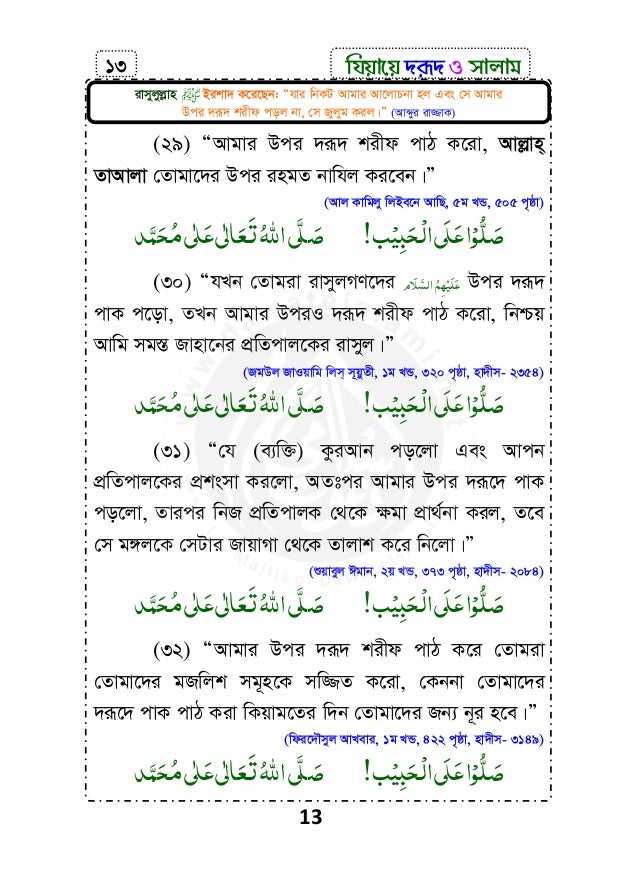 ১৩
যিয়ায়ে দরূদ ও সালাম
রাসুলুল্লাহ ﷺ ইরশাদ করেছেন: “যার নিকট আমার আলোচনা হল এবং সে আমার
উপর দরূদ শরীফ পড়ল না, সে জুলুম করল।” (আব্দুর রাজ্জাক)
(২৯) “আমার উপর দরূদ শরীফ পাঠ করো, আল্লাহ্
তাআলা তোমাদের উপর রহমত নাযিল করবেন।”
(আল কামিলু লিইবনে আছি, ৫ম খন্ড, ৫০৫ পৃষ্ঠা)
صَلُّوْا عَلَى الْحَبِيْب! صَلَّى اللهُ تَعَالٰى عَلٰى مُحَمَّد
(৩০) “যখন তোমরা রাসুলগণদের عَلَيْهِمُ السَّلَام উপর দরূদ
পাক পড়ো, তখন আমার উপরও দরূদ শরীফ পাঠ করো, নিশ্চয়
আমি সমস্ত জাহানের প্রতিপালকের রাসুল।”
(জমউল জাওয়ামি লিস্ সূয়ুতী, ১ম খন্ড, ৩২০ পৃষ্ঠা, হাদীস- ২৩৫৪)
صَلُّوْا عَلَى الْحَبِيْب! صَلَّى اللهُ تَعَالٰى عَلٰى مُحَمَّد
(৩১) “যে (ব্যক্তি) কুরআন পড়লো এবং আপন
প্রতিপালকের প্রশংসা করলো, অতঃপর আমার উপর দরূদে পাক
পড়লো, তারপর নিজ প্রতিপালক থেকে ক্ষমা প্রার্থনা করল, তবে
সে মঙ্গলকে সেটার জায়াগা থেকে তালাশ করে নিলো।”
(শুয়াবুল ঈমান, ২য় খন্ড, ৩৭৩ পৃষ্ঠা, হাদীস- ২০৮৪)
صَلُّوْا عَلَى الْحَبِيْب! صَلَّى اللهُ تَعَالٰى عَلٰى مُحَمَّد
(৩২) “আমার উপর দরূদ শরীফ পাঠ করে তোমরা
তোমাদের মজলিশ সমূহকে সজ্জিত করো, কেননা তোমাদের
দরূদে পাক পাঠ করা কিয়ামতের দিন তোমাদের জন্য নূর হবে।”
(ফিরদৌসুল আখবার, ১ম খন্ড, ৪২২ পৃষ্ঠা, হাদীস- ৩১৪৯)
صَلُّوْا عَلَى الْحَبِيْب! صَلَّى اللهُ تَعَالٰى عَلٰى مُحَمَّد
13